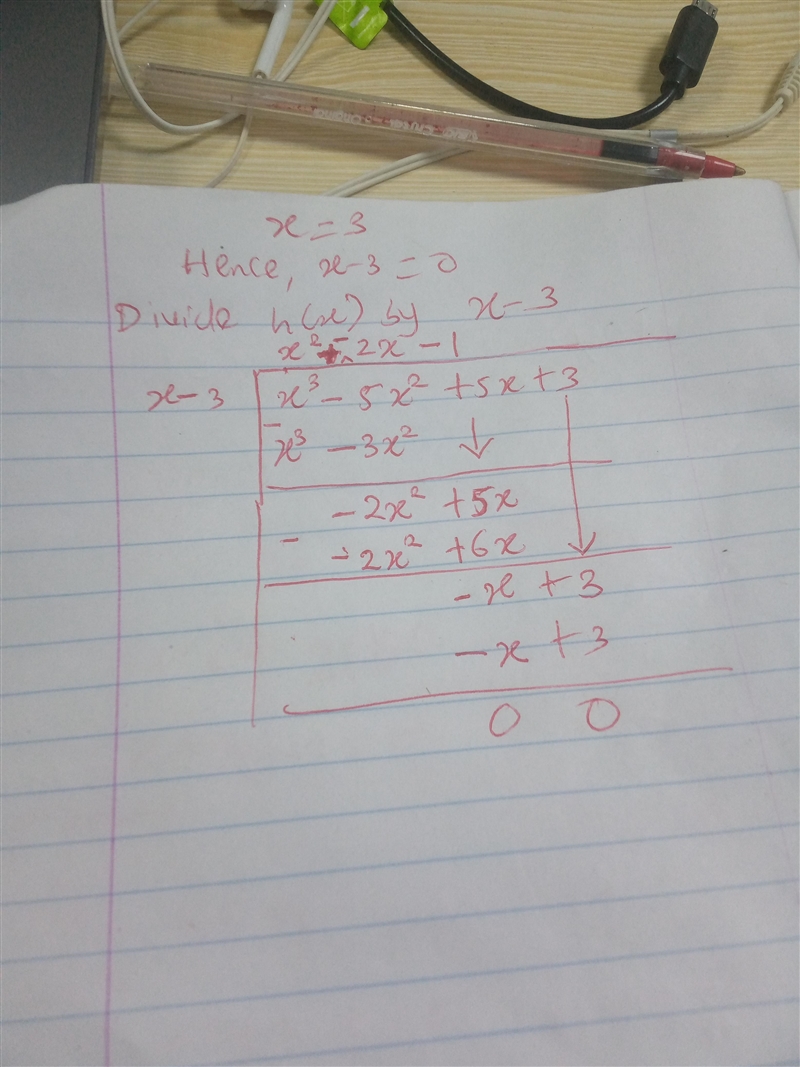 x = 3
Hence, x-3 = 0
Divide h(x) by x-3
x² - 2x - 1
x-3 x³ - 5x² + 5x + 3
- x³ - 3x² ↓
- 2x² + 5x
- - 2x² + 6x
- x + 3
- x + 3
0 0